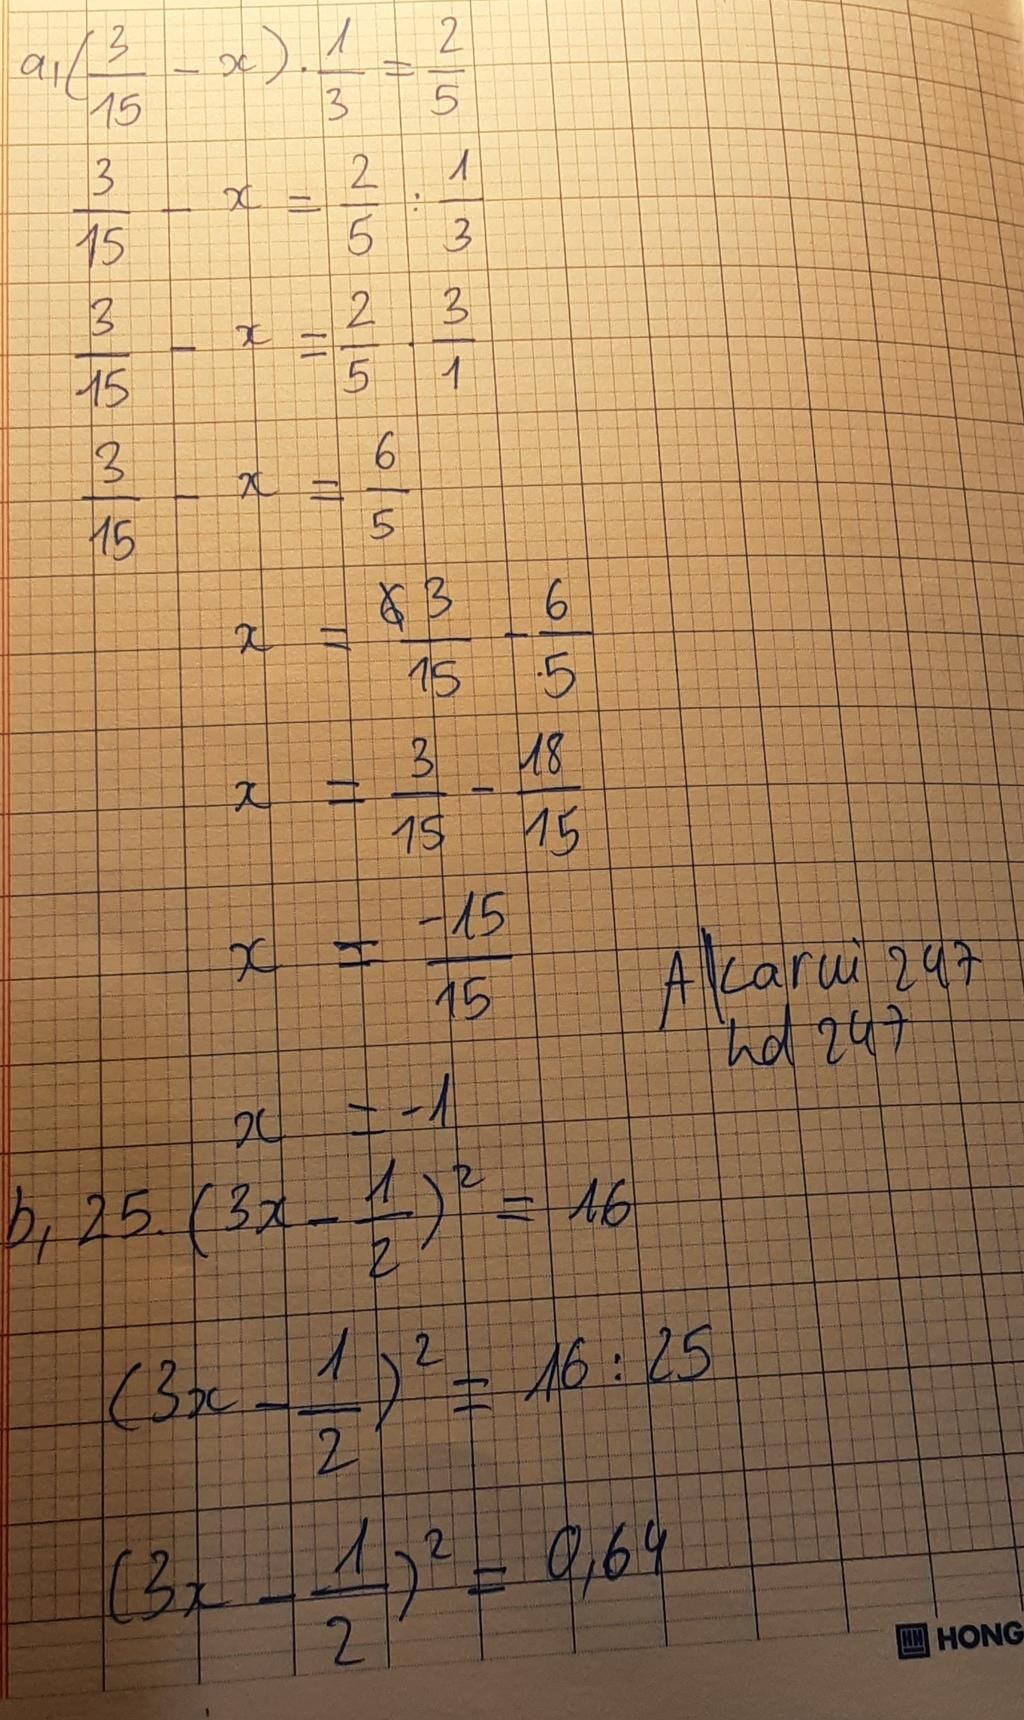 a, (3/15 - x) . 1/3 = 2/5
3/15 - x = 2/5 : 1/3
3/15 - x = 2/5 . 3/1
3/15 - x = 6/5
x = 3/15 - 6/5
x = 3/15 - 18/15
x = -15/15
247
hd 247
x = -1
b, 25. (3x - 1/2)² = 16
(3x - 1/2)² = 16 : 25
(3x - 1/2)² = 0,64
HONG